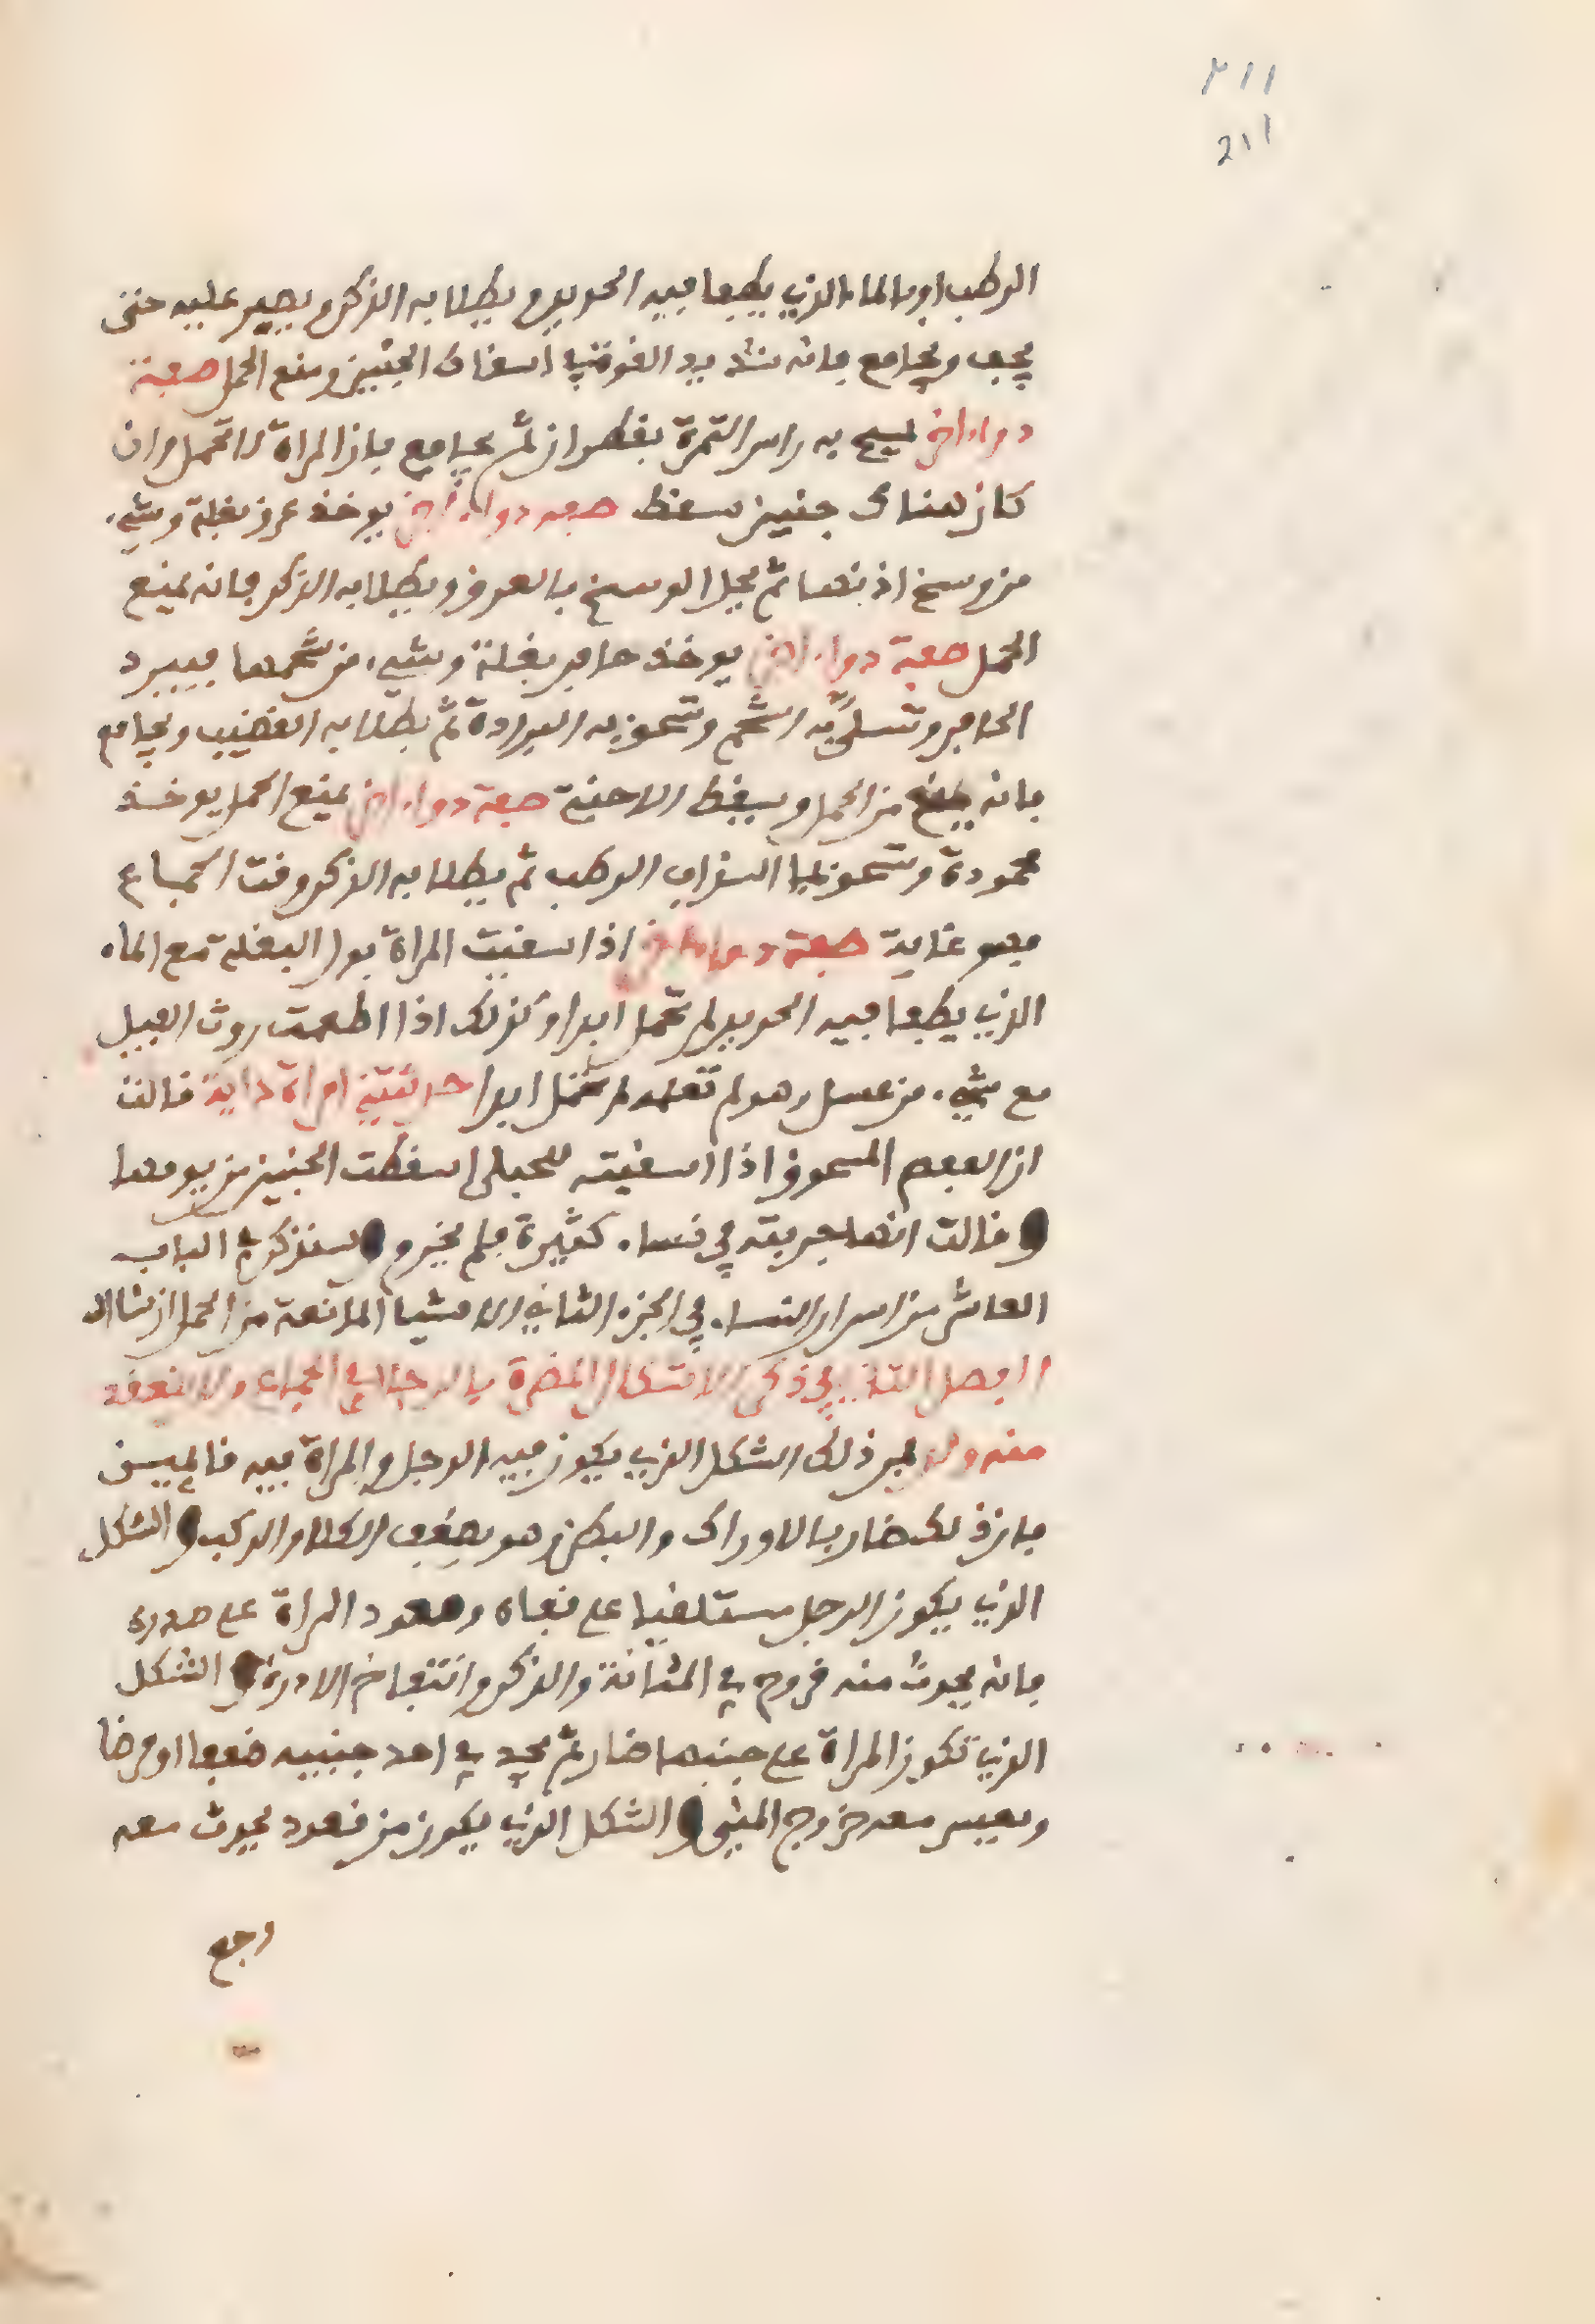 ٢١١
211
الرطب او بالماء الذي يطفا فيه الحديد ويطلا به الذكر ويصبر عليه حتى
يجف ويجامع فانه شديد القوة في اسقاط الجنين ومنع الحمل صفة
دواء اخر يمسح به راس التمرة بقطران ثم يجامع فان المراة لا تحمل وان
كان هناك جنين سقط صفة دواء اخر يوخذ عرق بغلة وشيء
من وسخ اذنها ثم يحل الوسخ بالعرق ويطلا به الذكر فانه يمنع
الحمل صفة دواء اخر يوخذ حافر بغلة وشيء من شحمها فيبرد
الحافر وتسلي به الشحم وتسحق به البرادة ثم يطلا به القضيب ويجامع
فانه يمنع من الحمل ويسقط الاجنة صفة دواء اخر يمنع الحمل يوخذ
محمودة وتسحق بها السذاب الرطب ثم يطلا به الذكر وقت الجماع
فهو غاية صفة دواء اخر اذا سقيت المراة بول البغلة مع الماء
الذي يطفا فيه الحديد لم تحمل ابدا وكذلك اذا اطعمت روث الفيل
مع شيء من عسل وهو لم تعلم لم تحمل ابدا حدثتني امراة داية قالت
ان العفص المسحوق اذا اسقيته للحبلى اسقطت الجنين من يومها
وقالت انها جربته في نساء كثيرة فلم يخرم وسنذكر في الباب
العاشر من اسرار النساء في الجزء الثاني الاشيا المانعة من الحمل ان شا الله
الفصل الثاني في ذكر الاشكال المضرة بالرجال في الجماع والانفة
منه وله فمن ذلك الشكل الذي يكون فيه الرجل والمراة فيه قائمين
فان ذلك ضار بالاوراك والبطن وهو يضعف الكلا والركب والشكل
الذي يكون الرجل مستلقيا على قفاه وصعود المراة على صدره
فانه يحدث منه قروح في المثانة والذكر وانتفاخ الادرة والشكل
الذي تكون المراة على جنبها ضار ثم يجد في احد جنبيه ضعفا او مرضا
ويعسر معه خروج المني والشكل الذي يكون من قعود يحدث معه
وجع